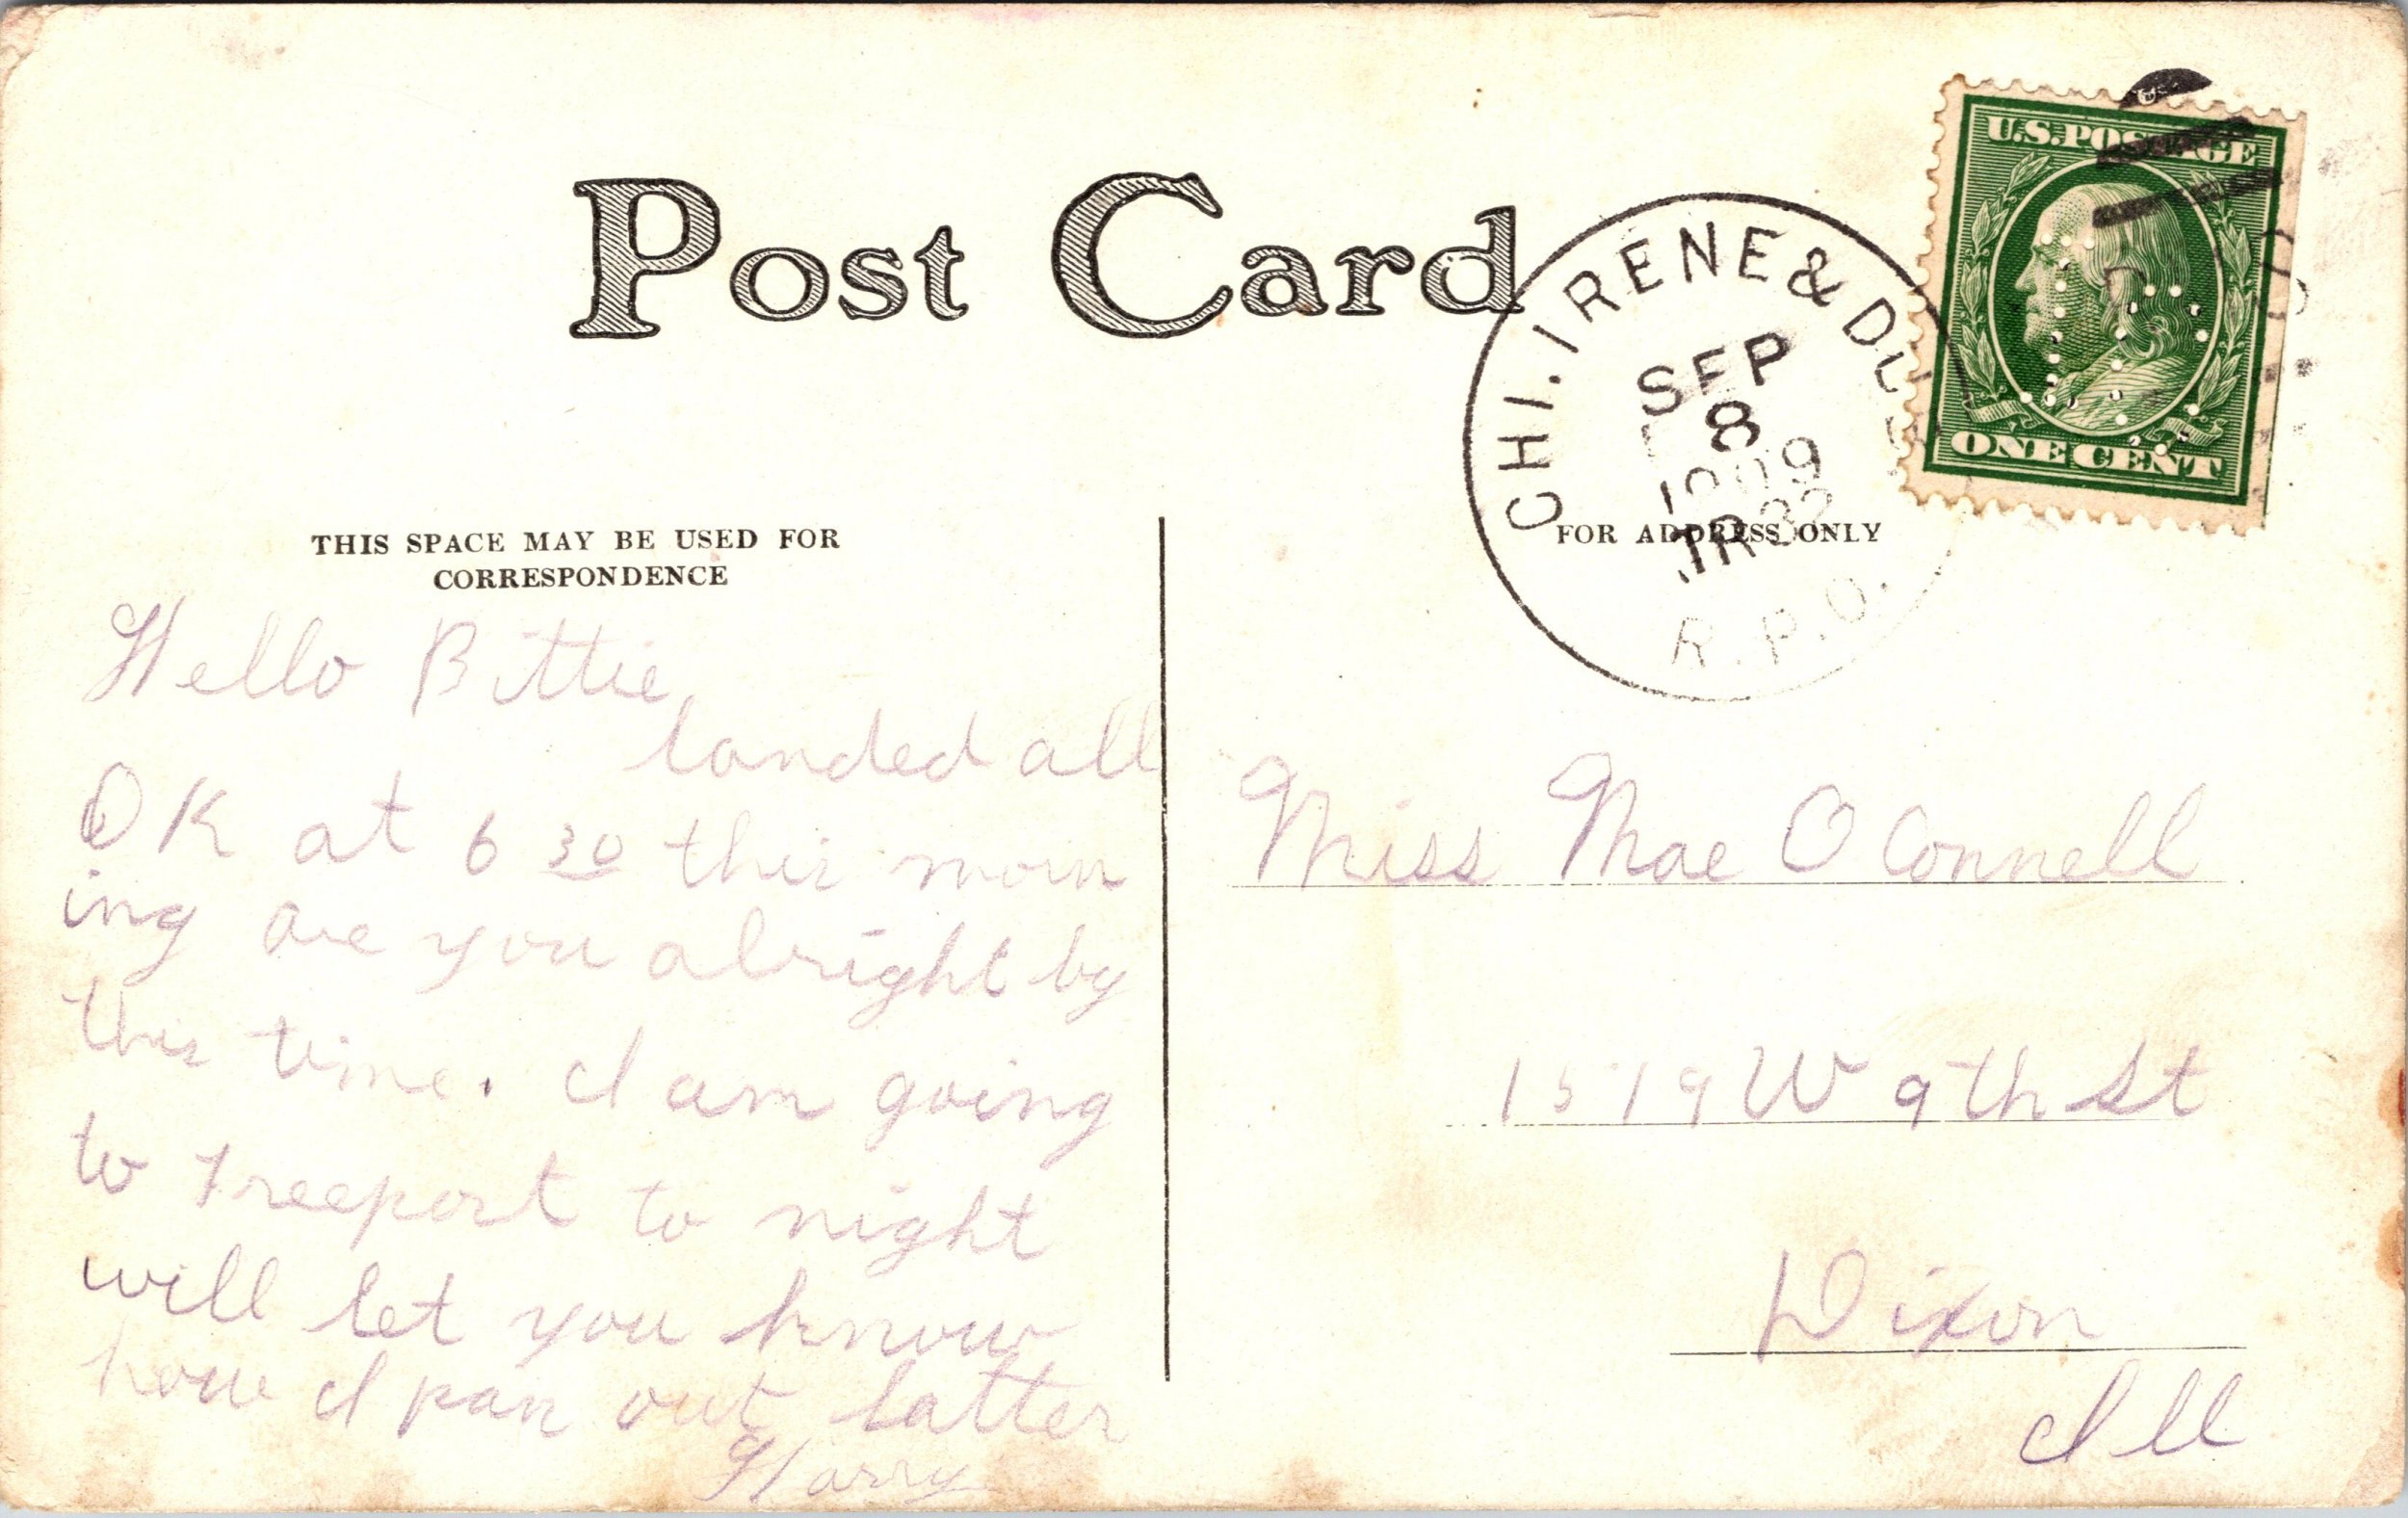 Post Card
U.S. POSTAGE
ONE CENT
CHI. IRENE & DU
SEP
8
1909
TR 32
R.P.O.
THIS SPACE MAY BE USED FOR
CORRESPONDENCE
FOR ADDRESS ONLY
Hello Bittie
landed all
OK at 6 30 this morn
ing are you alright by
this time. I am going
to Freeport to night
will let you know
how I pan out latter
Harry
Miss Mae O Connell
1519 W 9th St
Dixon
Ill